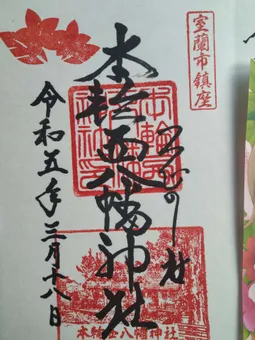 室蘭市鎮座
本輪西八幡神社
令和五年三月十八日
本輪西八幡神社